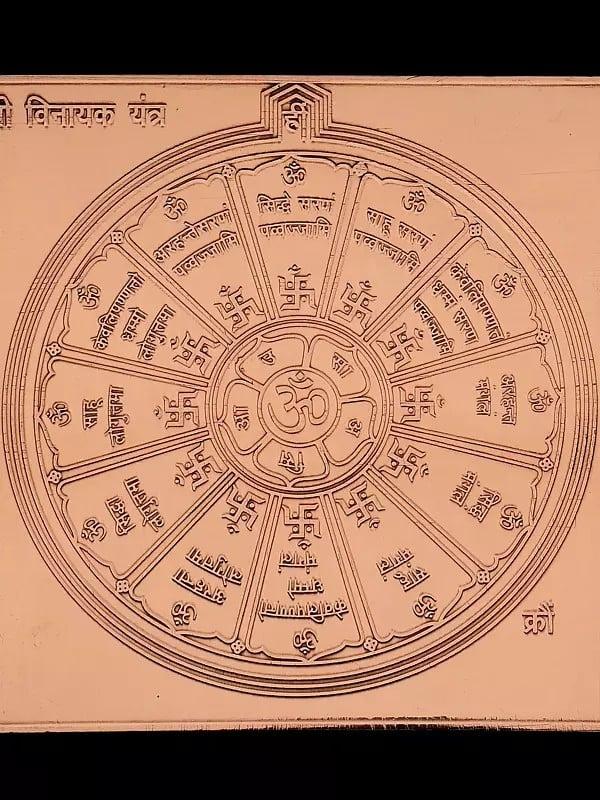 विनायक यंत्र
ह्रीं
ॐ
सिद्धे सरणं
पव्वज्जामि
ॐ
साहू सरणं
पव्वज्जामि
ॐ
केवलिपण्णतं
धम्मं सरणं
पव्वज्जामि
ॐ
अरहन्ता
मंगलं
ॐ
सिद्ध
मंगलं
ॐ
साहू
मंगलं
ॐ
केवलिपण्णतो
धम्मो
मंगलं
ॐ
अरहन्ता
लोगुत्तमा
ॐ
सिद्धा
लोगुत्तमा
ॐ
साहू
लोगुत्तमा
ॐ
केवलिपण्णतो
धम्मो
लोगुत्तमा
ॐ
अरहन्ते सरणं
पव्वज्जामि
सा
अ
सि
आ
ॐ
क्रौं